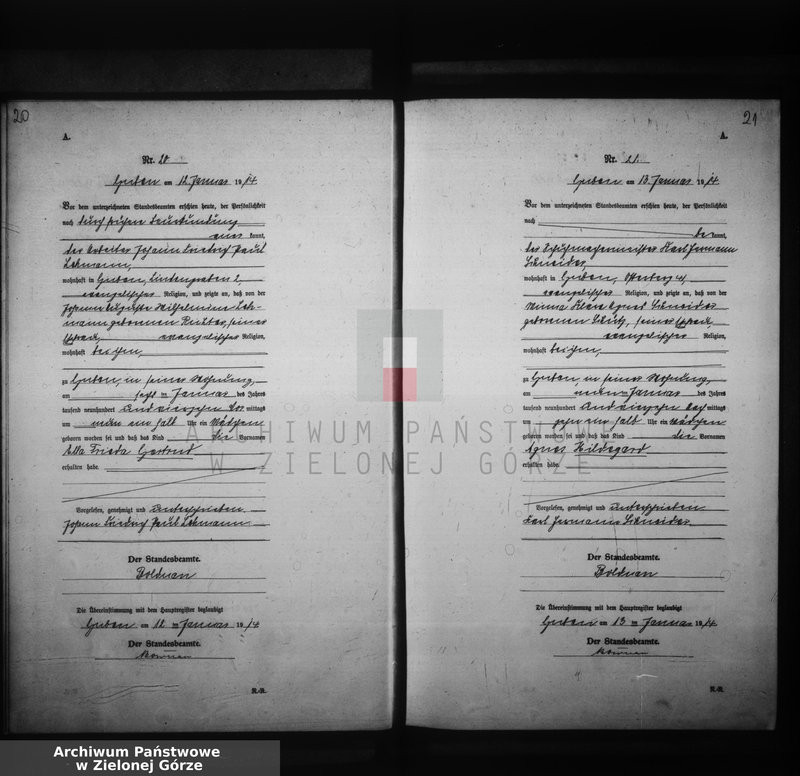 20
A.
Nr. 20
Guben am 12. Januar 1914
Vor dem unterzeichneten Standesbeamten erschien heute, der Persönlichkeit
nach durch frühere Beurkundung
kannt,
der Arbeiter Johann Friedrich Paul
Lehmann,
wohnhaft in Guben, Lindengraben 2,
evangelischer Religion, und zeigte an, daß von der
Johanne Auguste Wilhelmine Leh-
mann geborenen seiner
Ehefrau, evangelischer Religion,
wohnhaft bei ihm,
zu Guben, in seiner Wohnung,
am Januar des Jahres
tausend neunhundert und vierzehn Vormittags
um neun ein halb Uhr ein Mädchen
geboren worden sei und daß das Kind die Vornamen
Frieda Gertrud
erhalten habe.
Vorgelesen, genehmigt und unterschrieben
Johann Friedrich Paul Lehmann
Der Standesbeamte.
Bolduan
Die Übereinstimmung mit dem Hauptregister beglaubigt
Guben am 12 ten Januar 1914
Der Standesbeamte.
R.-R.
21
A.
Nr. 21.
Guben am 13. Januar 1914
Vor dem unterzeichneten Standesbeamten erschien heute, der Persönlichkeit
nach
be kannt,
der Schuhmachermeister Karl Hermann
Schneider,
wohnhaft in Guben, Osterberg
evangelischer Religion, und zeigte an, daß von der
Minna Klara Agnes Schneider
geborenen Schulz, seiner Ehefrau,
evangelischer Religion,
wohnhaft bei ihm,
zu Guben, in seiner Wohnung,
am neunten Januar des Jahres
tausend neunhundert und vierzehn Nachmittags
um zehn ein halb Uhr ein Mädchen
geboren worden sei und daß das Kind die Vornamen
Agnes Hildegard
erhalten habe.
Vorgelesen, genehmigt und unterschrieben
Karl Hermann Schneider
Der Standesbeamte.
Bolduan
Die Übereinstimmung mit dem Hauptregister beglaubigt
Guben am 13 ten Januar 1914
Der Standesbeamte.
R.-R.
ARCHIWUM PAŃSTWOWE
W ZIELONEJ GÓRZE
Archiwum Państwowe
w Zielonej Górze